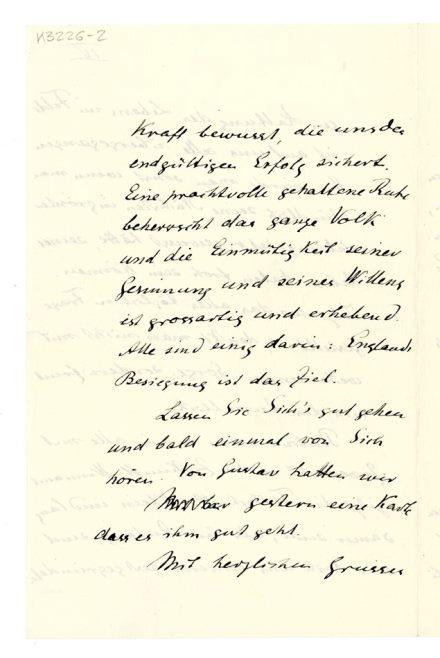 N3226-2
Kraft bewusst, die uns den
endgültigen Erfolg sichert.
Eine prachtvolle gehaltene Ruhe
beherrscht das ganze Volk
und die Einmütigkeit seiner
Gesinnung und seines Willens
ist grossartig und erhebend.
Alle sind einig darin: Englands
Besiegung ist das Ziel.
Lassen Sie Sich's gut gehen
und bald einmal von Sich
hören. Von Gustav hatten wir
gestern eine Karte
dass es ihm gut geht.
Mit herzlichen Grüssen